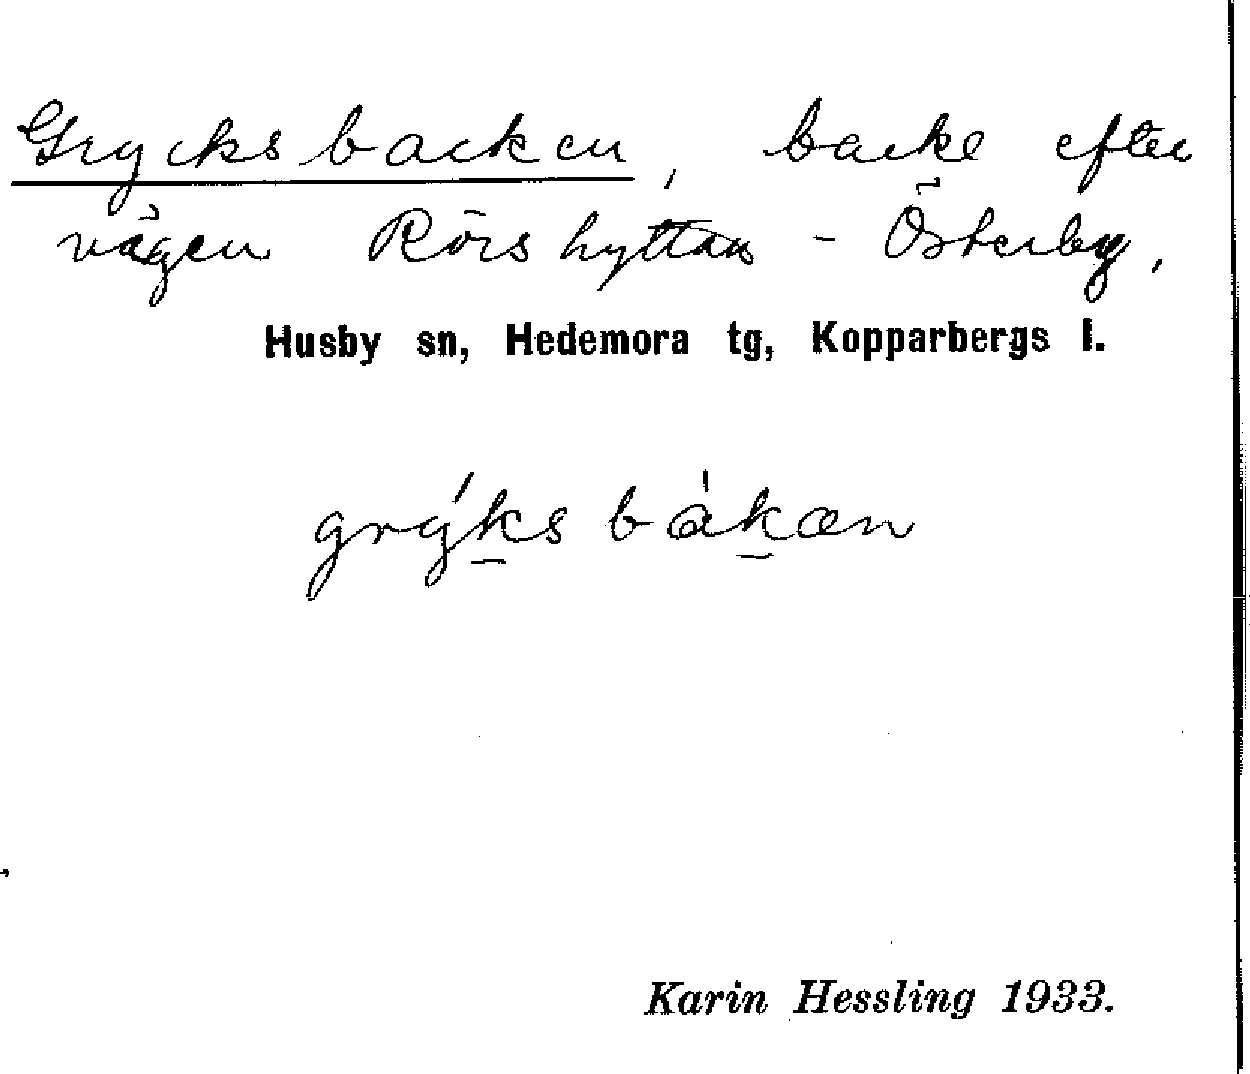 Grycksbacken, backe efter
vägen Rörshyttan - Österby.
Husby sn, Hedemora tg, Kopparbergs l.
grýks bàkæn
Karin Hessling 1933.